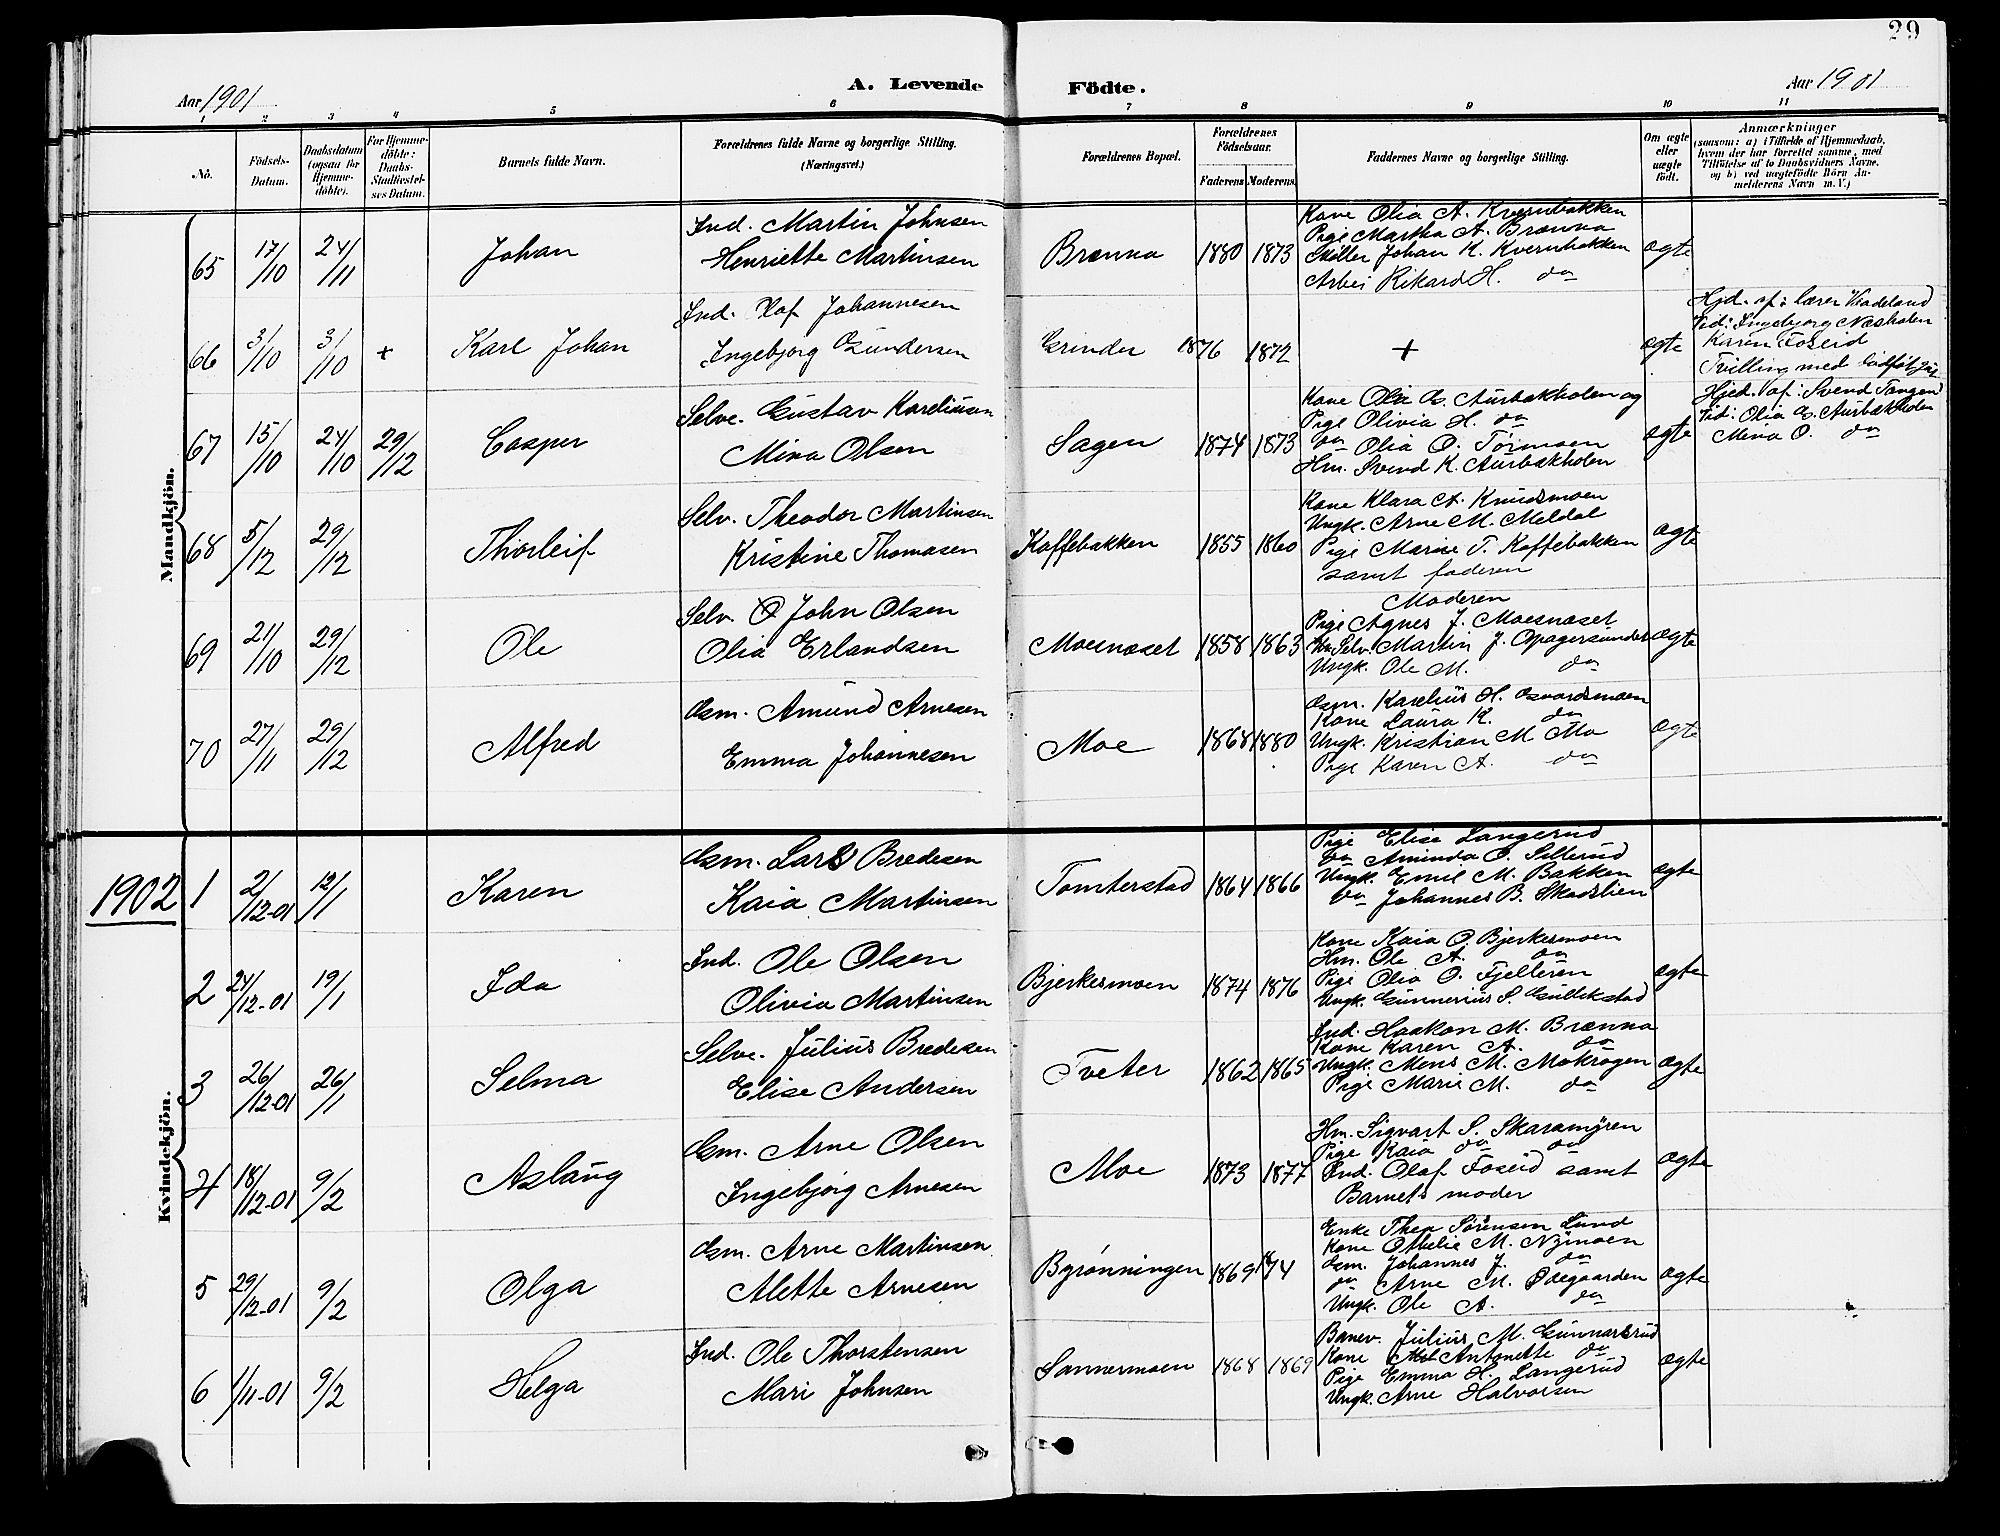 29
A. Levende Födte.
Aar 1901
Aar 1901
1 2 3 4 5 6 7 8 9 10 11
No.
Födsels-Datum.
Daabsdatum (ogsaa for Hjemmedöbte).
For Hjemmedöbte: Daabs-Stadfæstelses Datum.
Barnets fulde Navn.
Forældrenes fulde Navne og borgerlige Stilling. (Næringsvei.)
Forældrenes Bopæl.
Forældrenes Födselsaar.
Faderens Moderens.
Faddernes Navne og borgerlige Stilling.
Om ægte eller uægte födt.
Anmærkninger
(saasom: a) i Tilfælde af Hjemmedaab, hvem der har forrettet samme, med Tilföielse af to Daabsvidners Navne, og b) ved uægtefödte Börn Anmelderens Navn m. V.)
Mandkjön.
65 17/10 24/11 Johan
Ind. Martin Johnsen
Henriette Martinsen
Brænna 1880 1873
Kone Olia A. Kvernbakken
Pige Martha A. Brænna
Møller Johan K. Kvernbakken
Arbei Rikard H. do
ægte
66 3/10 3/10 + Karl Johan
Ind. Olaf Johannesen
Ingebjorg Gundersen
Grinder 1876 1872
+
ægte
Hjd. af: lærer Viadeland
Vid: Ingebjorg Næsholen
Karen Foseid
Tvilling med
67 15/10 24/10 29/12 Casper
Selve. Gustav Kareliusen
Mina Olsen
Sagen 1874 1873
Kone Olia G. Aurbakholen og
Pige Olivia H. do
do Olia O. Tørmoen
Hm. Svend K. Aurbakholen
ægte
Hjed. af: Svend Tangen
Vid: Olia G. Aurbakholen
Mina O. do
68 5/12 29/12 Thorleif
Selv. Theodor Martinsen
Kristine Thomasen
Kaffebakken 1855 1860
Kone Klara A. Knudsmoen
Ungk. Arne M. Meldal
Pige Marie T. Kaffebakken
samt faderen
ægte
69 21/10 29/12 Ole
Selv. John Olsen
Olia Erlandsen
Moesnæset 1858 1863
Moderen
Pige Agnes J. Moesnæset
Selv. Martin J. Opagersunder
Ungk. Ole M. do
ægte
70 27/11 29/12 Alfred
Gm. Amund Arnesen
Emma Johannesen
Moe 1868 1880
Gm. Karelius H. Gvardsmoen
Kone Laura K. do
Ungk. Kristian M. Mo
Pige Karen A. do
ægte
1902
Kvindekjön.
1 2/12-01 12/1 Karen
Gm. Lars Bredesen
Kaia Martinsen
Tomterstad 1864 1866
Pige Elise Langerud
do Aminda O. Sillerud
Ungk. Emil M. Bakken
do Johannes B. Skadslien
ægte
2 24/12-01 19/1 Ida
Ind. Ole Olsen
Olivia Martinsen
Bjerkesmoen 1874 1876
Kone Kaia O. Bjerkesmoen
Hm. Ole A. do
Pige Olia O. Fjelleren
Ungk. Gunnerius S. Gullikstad
ægte
3 26/12-01 26/1 Selma
Selve. Julius Bredesen
Elise Andersen
Tveter 1862 1865
Ind. Haakon M. Brænna
Kone Karen A. do
Ungk. Mons M. Mokrogen
Pige Marie M. do
ægte
4 18/12-01 9/2 Aslaug
Gm. Arne Olsen
Ingebjorg Arnesen
Moe 1873 1877
Hm. Sigvart S. Skaramyren
Pige Kaia do do
Ind. Olaf Foseid samt
Barnets moder
ægte
5 29/12-01 9/2 Olga
Gm. Arne Martinsen
Alette Arnesen
Byrønningen 1869 1874
Enke Thea Sørensen Lund
Kone Othelie M. Nymoen
Gm. Johannes J. do
do Arne M. Ødegaarden
Ungk. Ole A. do
ægte
6 1/11-01 9/2 Helga
Ind. Ole Thorstensen
Mari Johnsen
Sannermoen 1868 1869
Banev. Julius M. Gunnarsrud
Kone Antonette do
Pige Emma H. Langerud
Ungk. Arne Halvorsen
ægte